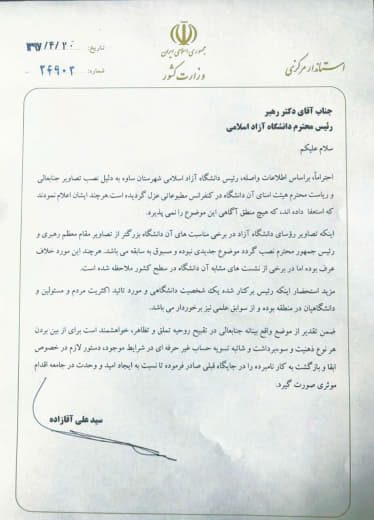 جمهوری اسلامی ایران
وزارت کشور
استاندار مرکزی
تاریخ: ۹۷/۴/۲۰
شماره: ۲۴۹۰۲
جناب آقای دکتر رهبر
رئیس محترم دانشگاه آزاد اسلامی
سلام علیکم
احتراماً، براساس اطلاعات واصله، رئیس دانشگاه آزاد اسلامی شهرستان ساوه به دلیل نصب تصاویر جنابعالی
و ریاست محترم هیئت امنای آن دانشگاه در کنفرانس مطبوعاتی عزل گردیده است هرچند ایشان اعلام نمودند
که استعفا داده اند، که هیچ منطق آگاهی این موضوع را نمی پذیرد.
اینکه تصاویر رؤسای دانشگاه آزاد در برخی مناسبت های آن دانشگاه بزرگتر از تصاویر مقام معظم رهبری و
رئیس جمهور محترم نصب گردد موضوع جدیدی نبوده و مسبوق به سابقه می باشد. هرچند این مورد خلاف
عرف بوده اما در برخی از نشست های مشابه آن دانشگاه در سطح کشور ملاحظه شده است.
مزید استحضار اینکه رئیس برکنار شده یک شخصیت دانشگاهی و مورد تائید اکثریت مردم و مسئولین و
دانشگاهیان در منطقه بوده و از سوابق علمی نیز برخوردار می باشد.
ضمن تقدیر از موضع واقع بینانه جنابعالی در تقبیح روحیه تملق و تظاهر، خواهشمند است برای از بین بردن
هر نوع ذهنیت و سوءبرداشت و شائبه تسویه حساب غیر حرفه ای در شرایط موجود، دستور لازم در خصوص
ابقا و بازگشت به کار نامبرده را در جایگاه قبلی صادر فرموده تا نسبت به ایجاد امید و وحدت در جامعه اقدام
موثری صورت گیرد.
سید علی آقازاده